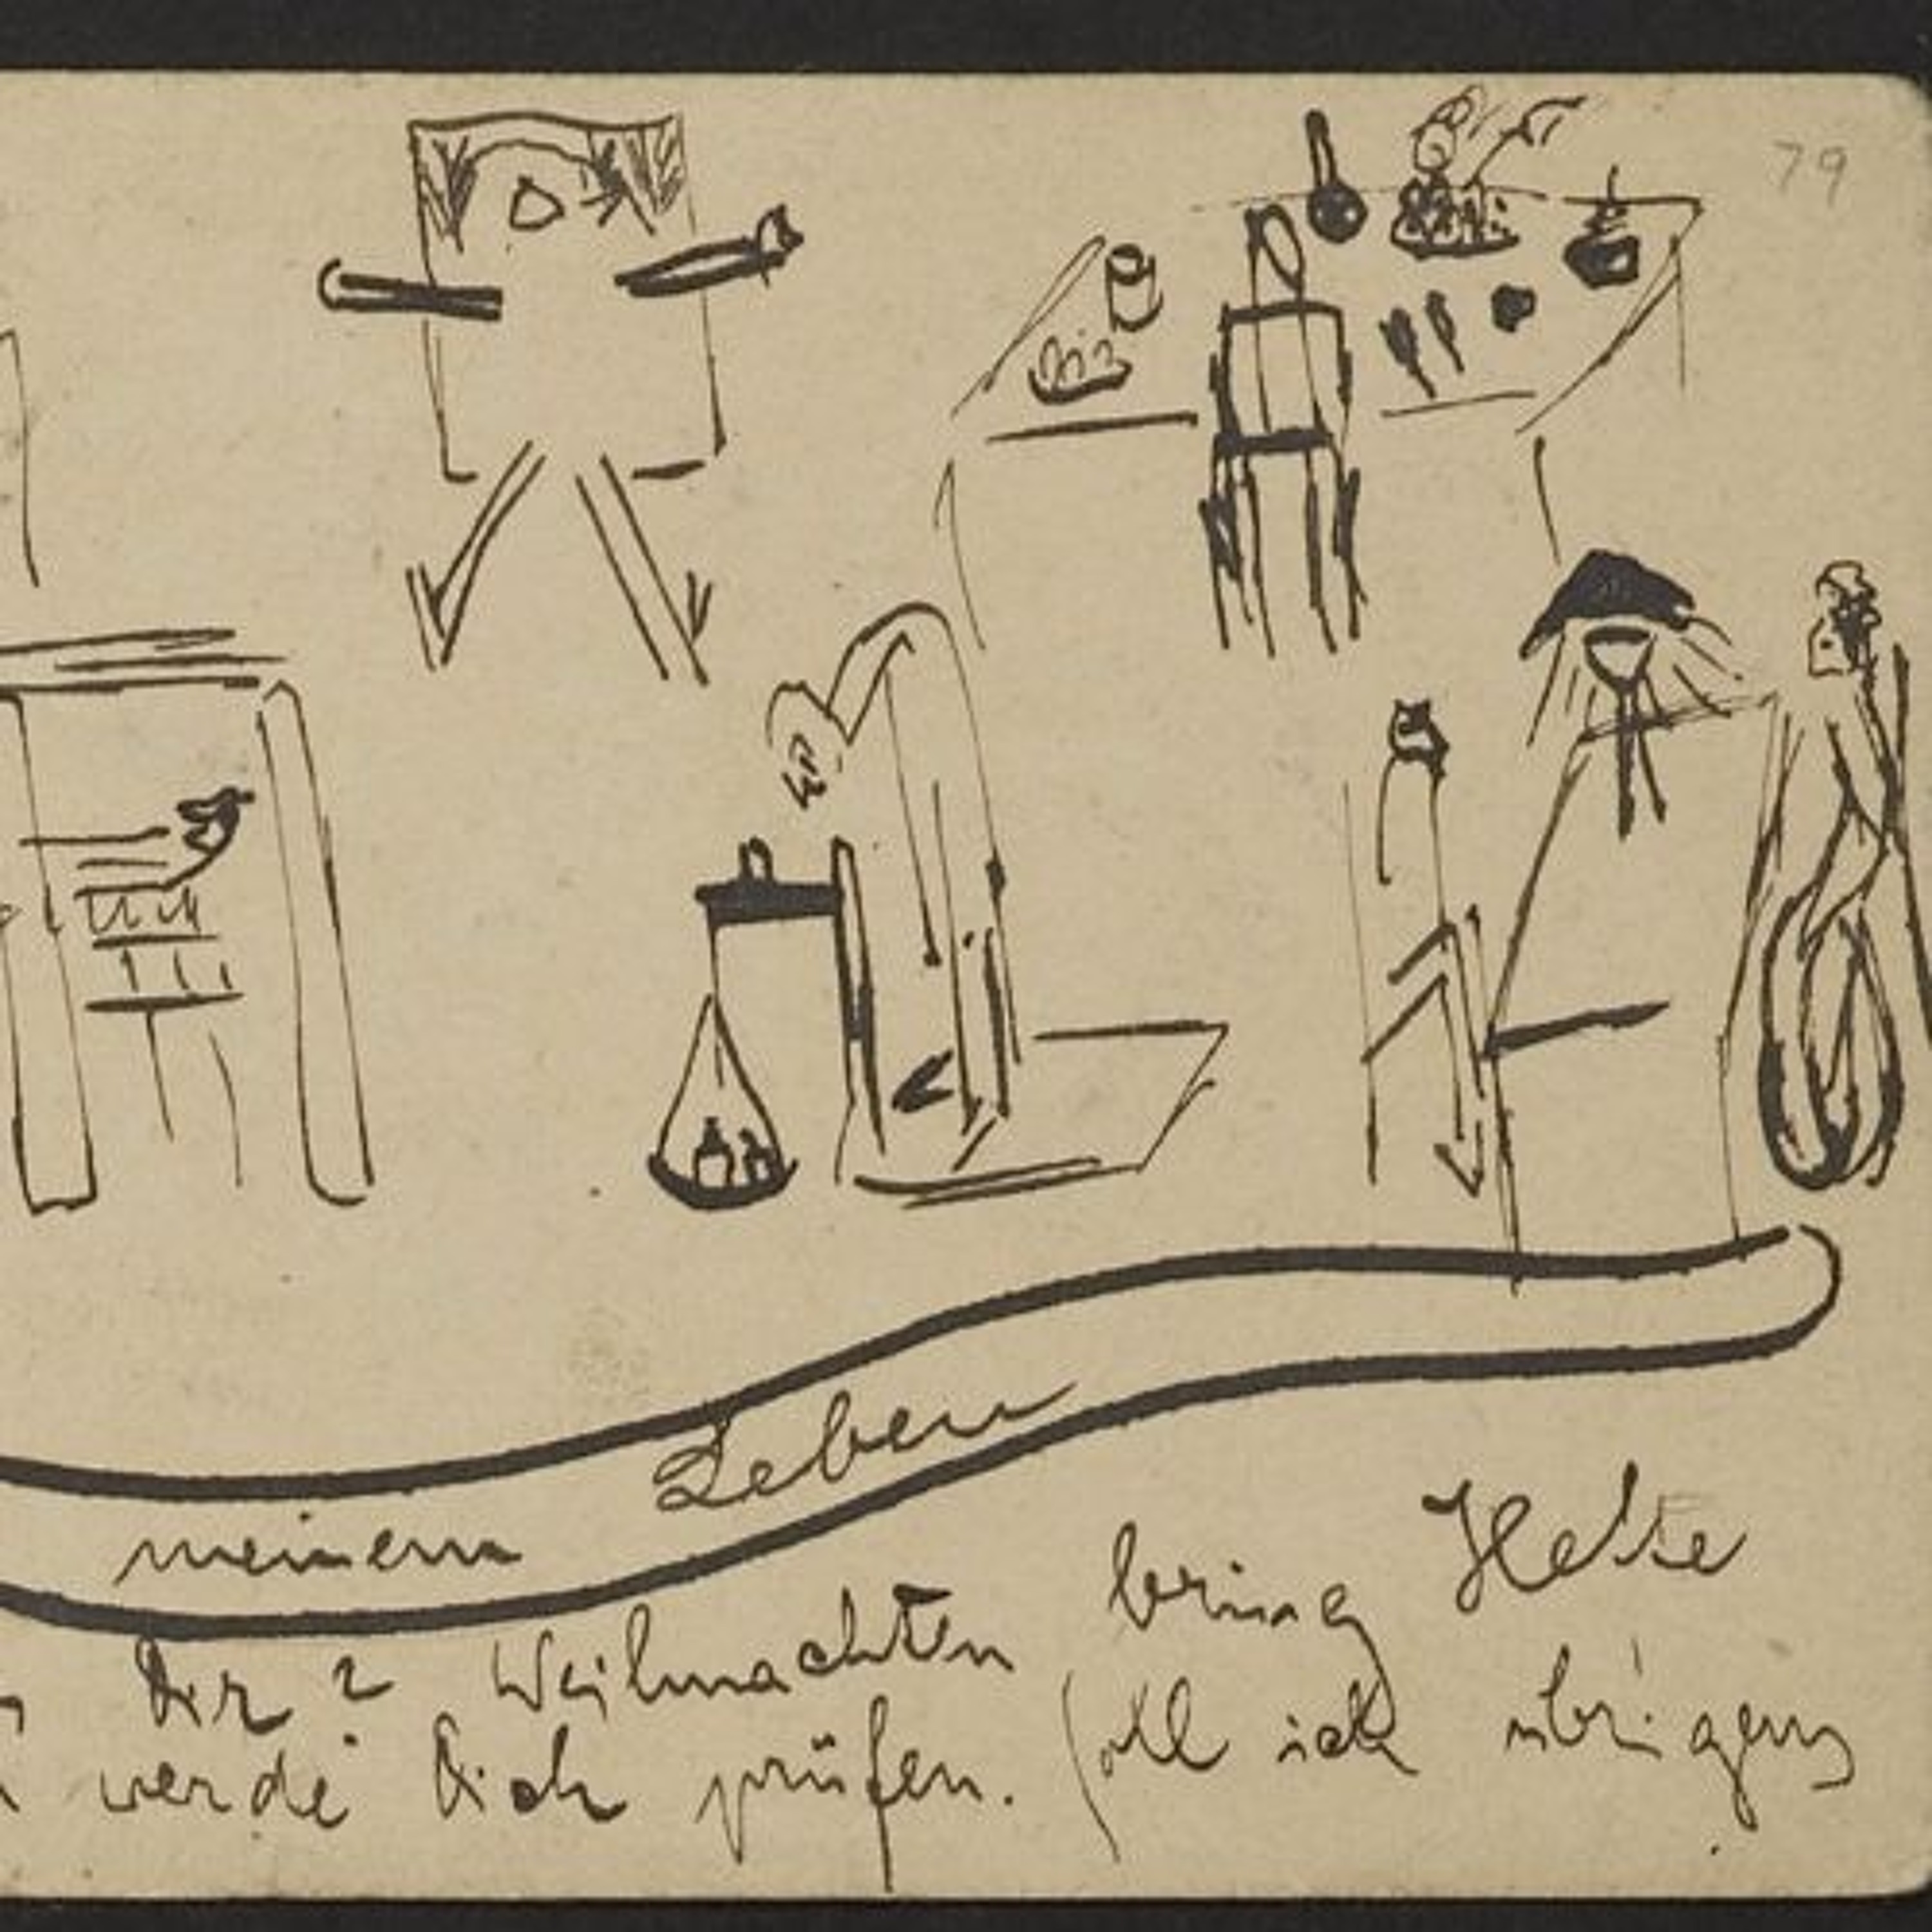 79
meinem Leben
Dir ? Weihnachten bring Hefte
werde Dich prüfen. Soll ich übrigens